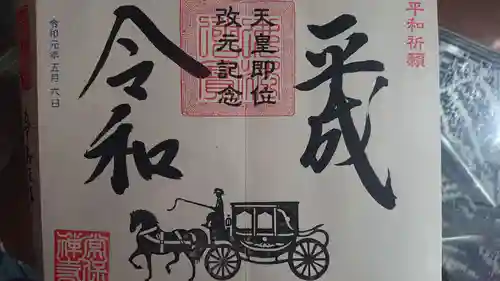 平和祈願
平成
天皇即位
改元記念
令和
令和元年五月六日